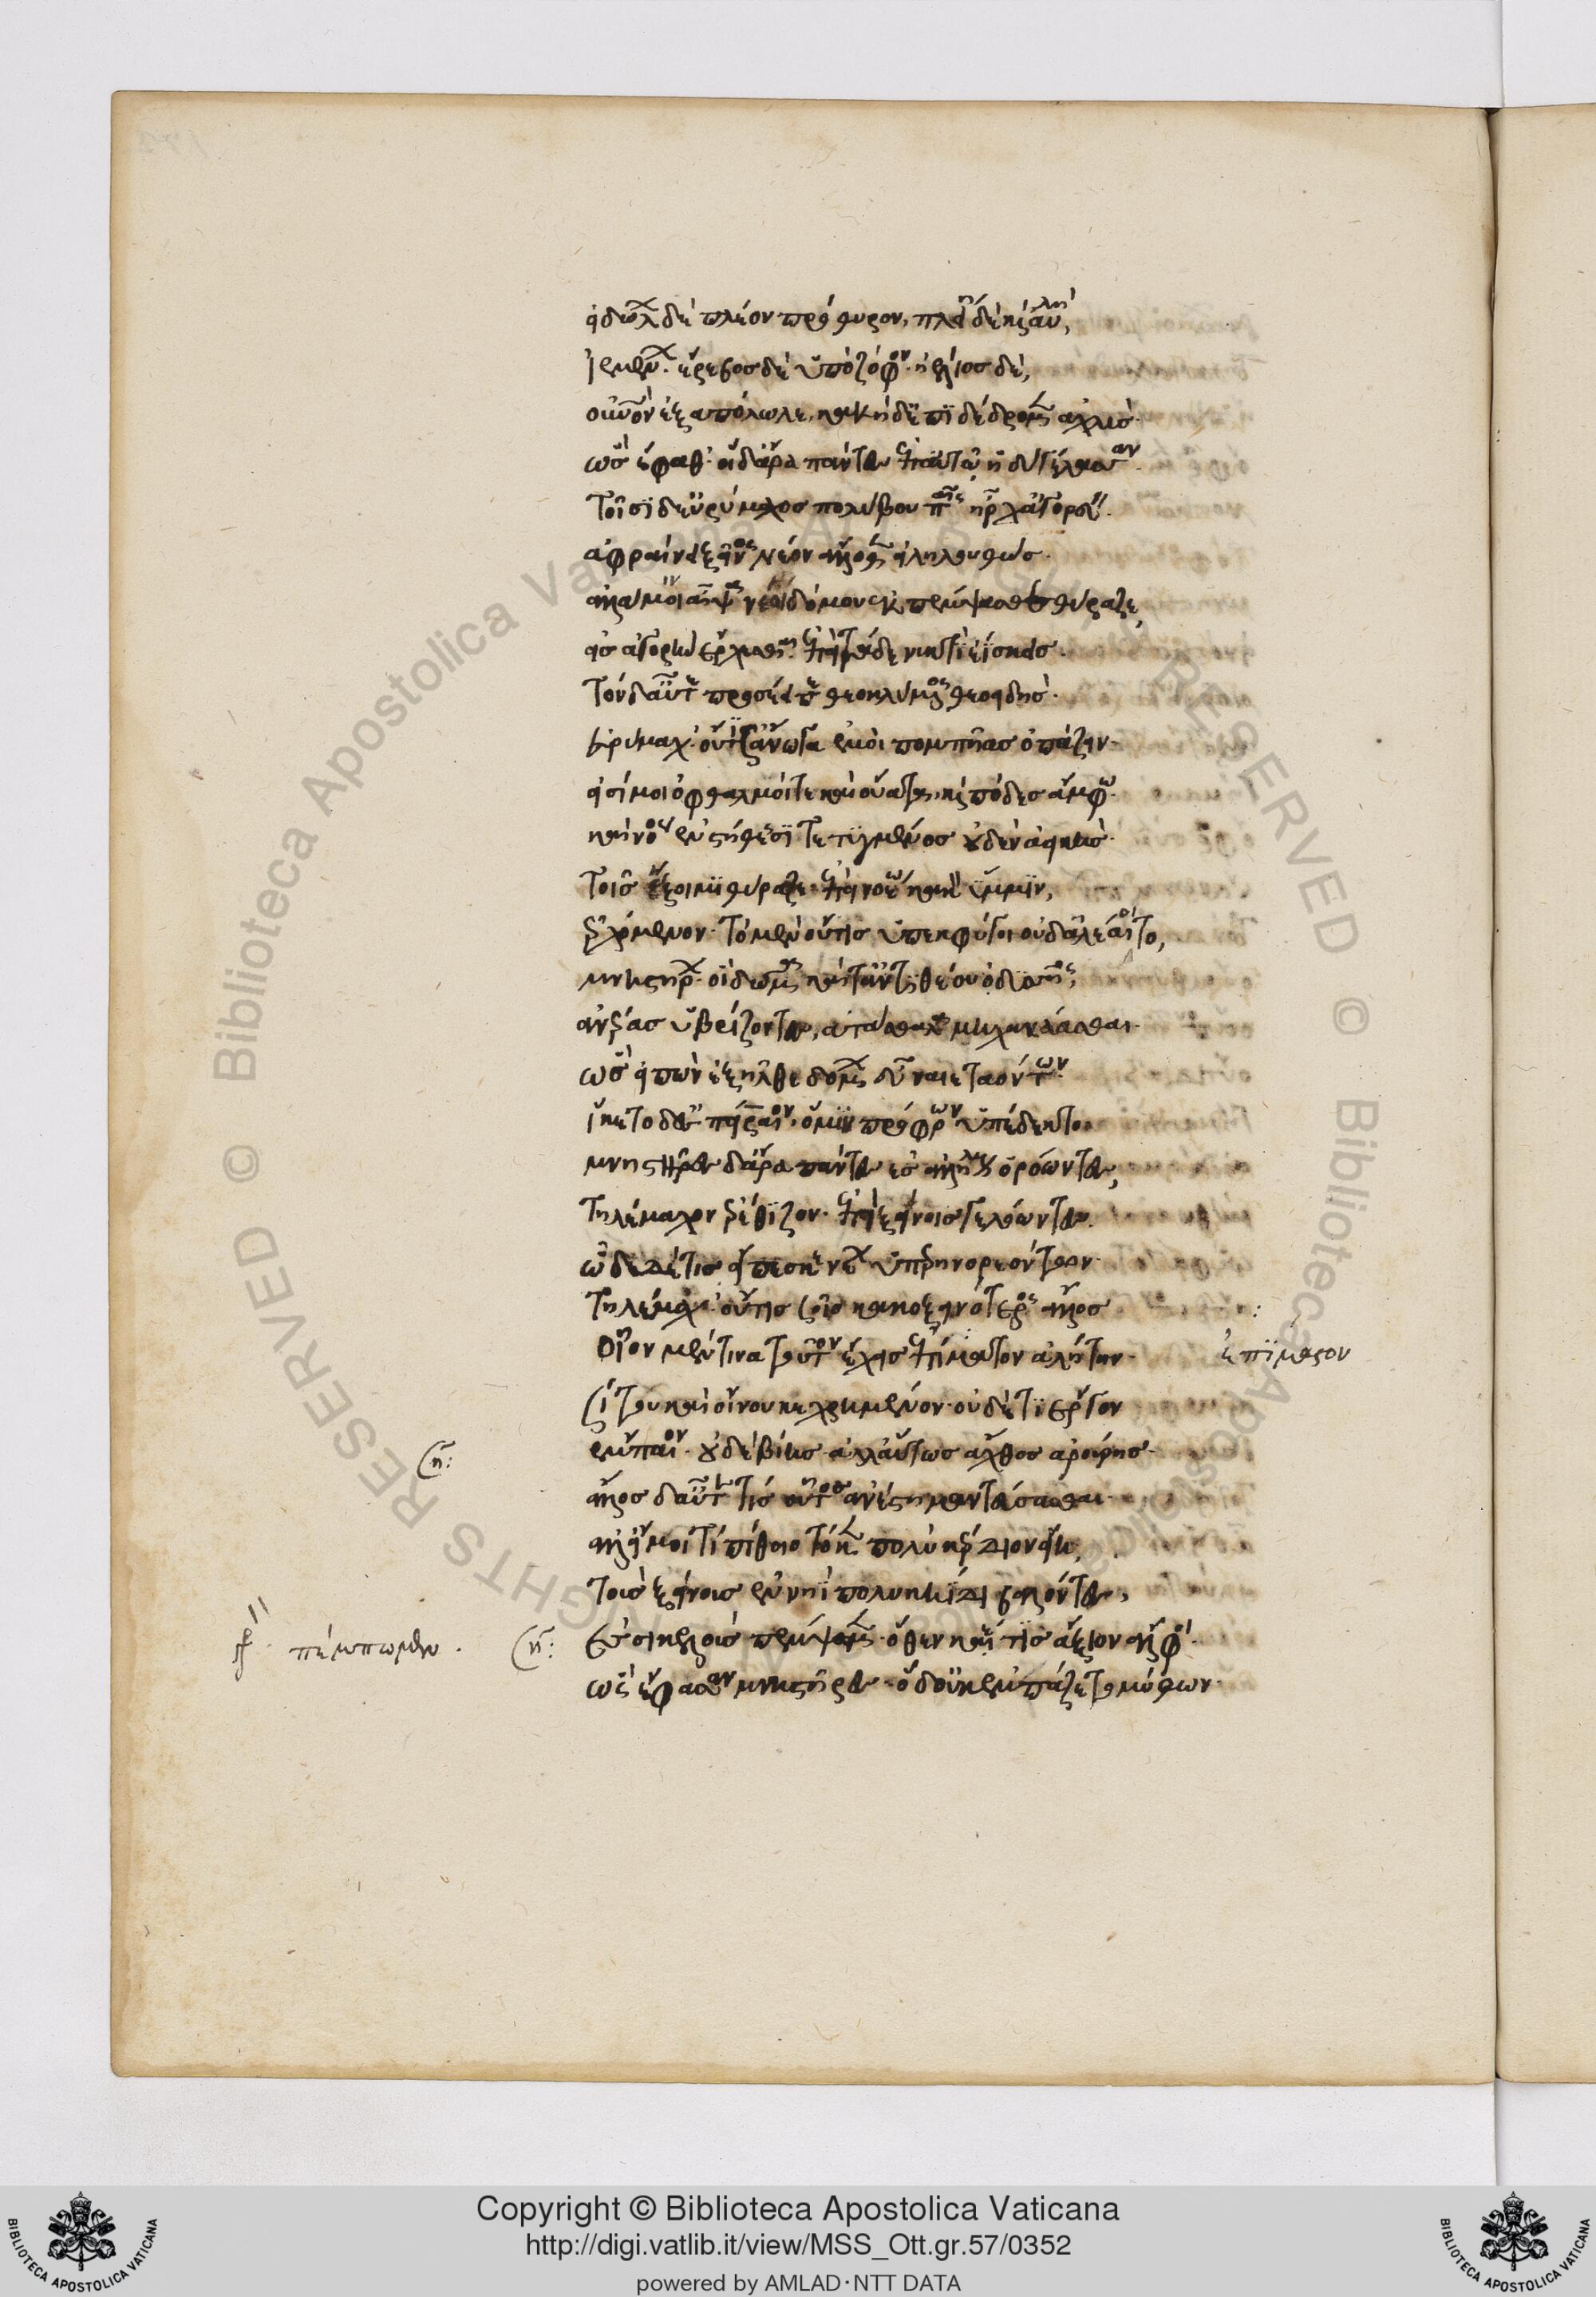 εἰδώλων δὲ πλέον πρόθυρον, πλείη δὲ καὶ αὐλή,
ἱεμένων ἔρεβος δὲ ὑπὸ ζόφον· ἠέλιος δὲ,
οὐρανὸν ἐξαπόλωλε, κακὴ δ' ἐπιδέδρομεν ἀχλύς·
ὣς ἔφαθ'· οἱ δ' ἄρα πάντες ἐπ' αὐτῷ ἡδὺ γέλασσαν·
τοῖσι δ' εὐρύμαχος πολύβου παῖς ἦρχ' ἀγορεύειν·
ἀφραίνει ξεῖνος νέον ἄλλοθεν εἰληλουθώς·
ἀλλά μιν αἶψα νέοι δόμου ἐκπέμψασθε θύραζε,
εἰς ἀγορὴν ἔρχεσθαι· ἐπεὶ τάδε νυκτὶ ἐΐσκει·
τὸν δ' αὖτε προσέειπε θεοκλύμενος θεοειδής·
εὐρύμαχ' οὔτί σ' ἄνωγα ἐμοὶ πομπῆας ὀπάζειν·
εἰσί μοι ὀφθαλμοί τε καὶ οὔατα, καὶ πόδες ἄμφω·
καὶ νόος ἐν στήθεσι τετυγμένος οὐδὲν ἀεικής·
τοῖς ἔξειμι θύραζε· ἐπεὶ νοέω κακὸν ὔμμιν,
ἐρχόμενον· τό κεν οὔτις ὑπεκφύγοι οὐδ' ἀλέαιτο,
μνηστήρων· οἳ δῶμα κατ' ἀντιθέου ὀδυσῆος,
ἀνέρας ὑβρίζοντες, ἀτάσθαλα μηχανάασθαι·
ὣς εἰπὼν ἐξῆλθε δόμων εὖ ναιεταόντων·
ἵκετο δ' ἐς πείραιον, ὅ μιν πρόφρων ὑπέδεκτο·
μνηστῆρες δ' ἄρα πάντες ἐς ἀλλήλους ὁρόωντες,
τηλέμαχον ἐρέθιζον· ἐπὶ ξείνοις γελόωντες·
ὧδε δέ τις εἴπεσκε νέων ὑπερηνορεόντων·
τηλέμαχ' οὔτις σεῖο κακοξεινώτερος ἄλλος
οἷον μέν τινα τοῦτον ἔχεις ἐπίμαστον ἀλήτην·
ἐπίμαστον
σίτου καὶ οἴνου κεχρημένον· οὐδέ τι ἔργων
ἔμπαιον· οὐδὲ βίης· ἀλλ' αὔτως ἄχθος ἀρούρης·
ση:
ἄλλος δ' αὖτέ τις οὗτος ἀνέστη μαντεύσασθαι·
ἀλλ' εἴ μοί τι πίθοιο τό κεν πολὺ κέρδιον εἴη,
τοὺς ξείνους ἐν νηῒ πολυκληῗδι βαλόντες,
ἐς σικελοὺς πέμψωμεν· ὅθεν κέ τις ἄξιον ἄλφοι·
γρ. πέμπωμεν.
ση:
ὣς ἔφασαν μνηστῆρες· ὁ δ' οὐκ ἐμπάζετο μύθων·
Copyright © Biblioteca Apostolica Vaticana
http://digi.vatlib.it/view/MSS_Ott.gr.57/0352
powered by AMLAD·NTT DATA